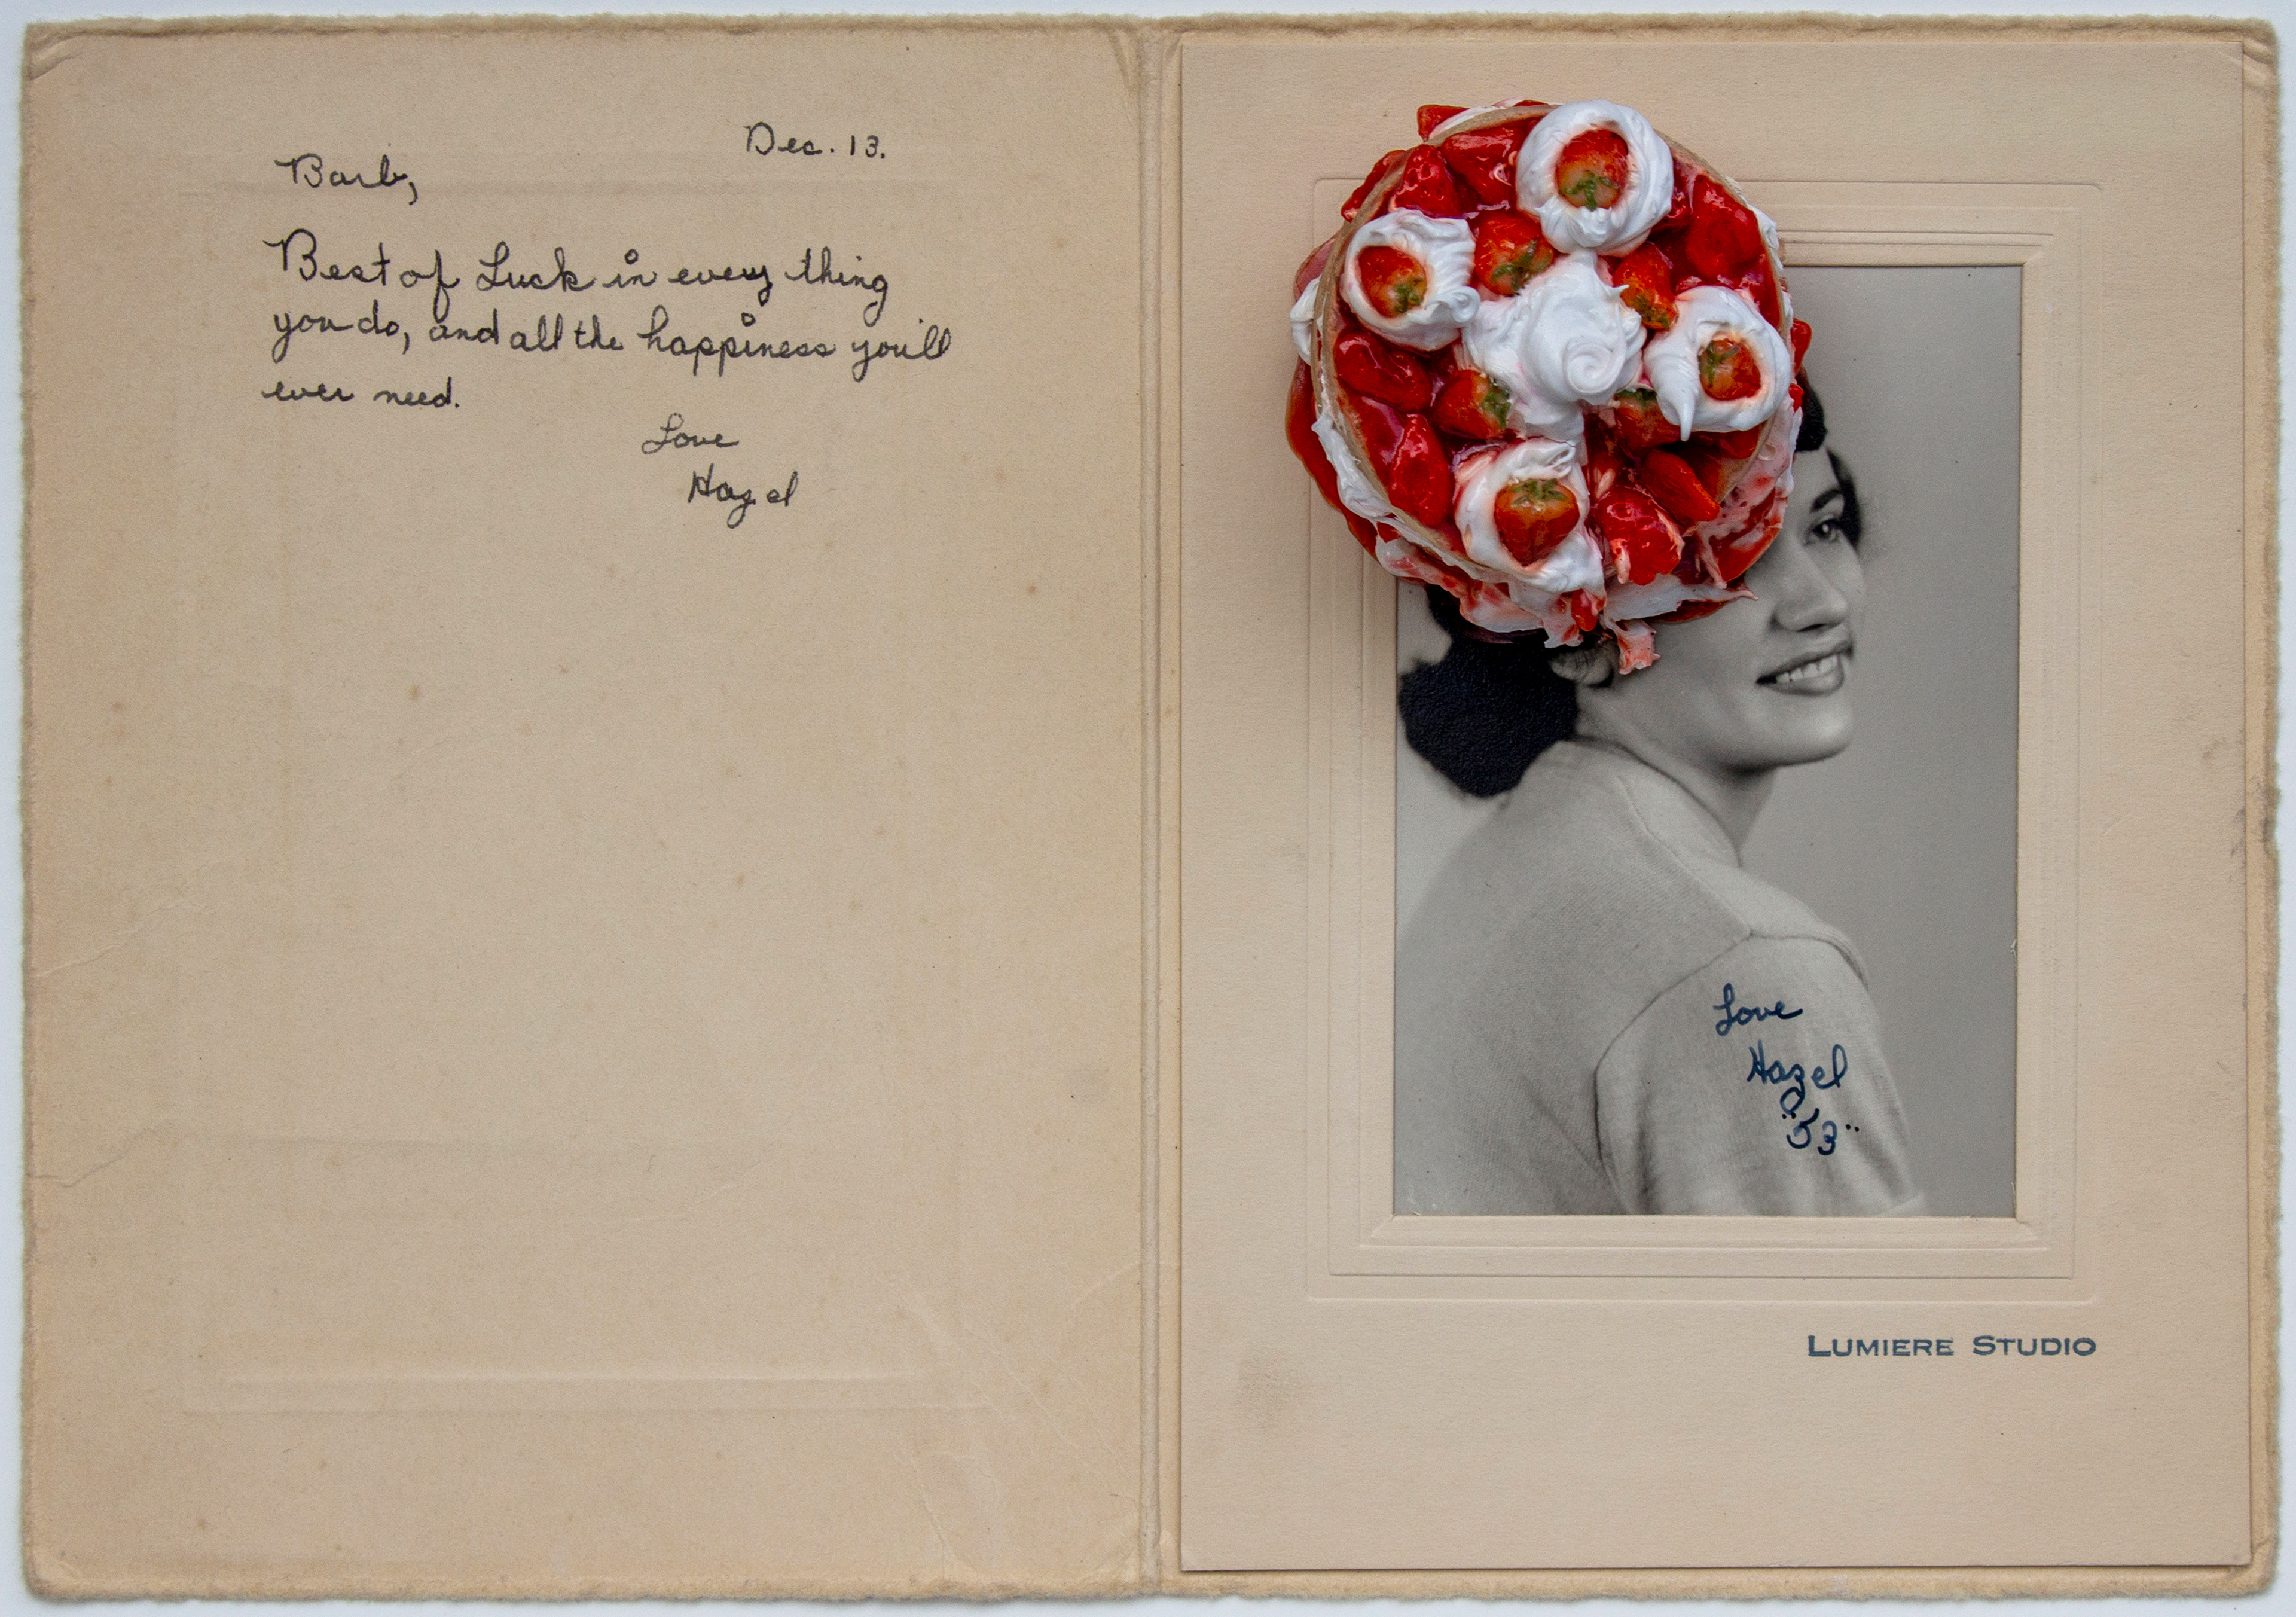 Dec. 13.
Barb,
Best of Luck in every thing
you do, and all the happiness you'll
ever need.
Love
Hazel
Love
Hazel
"53"
LUMIERE STUDIO